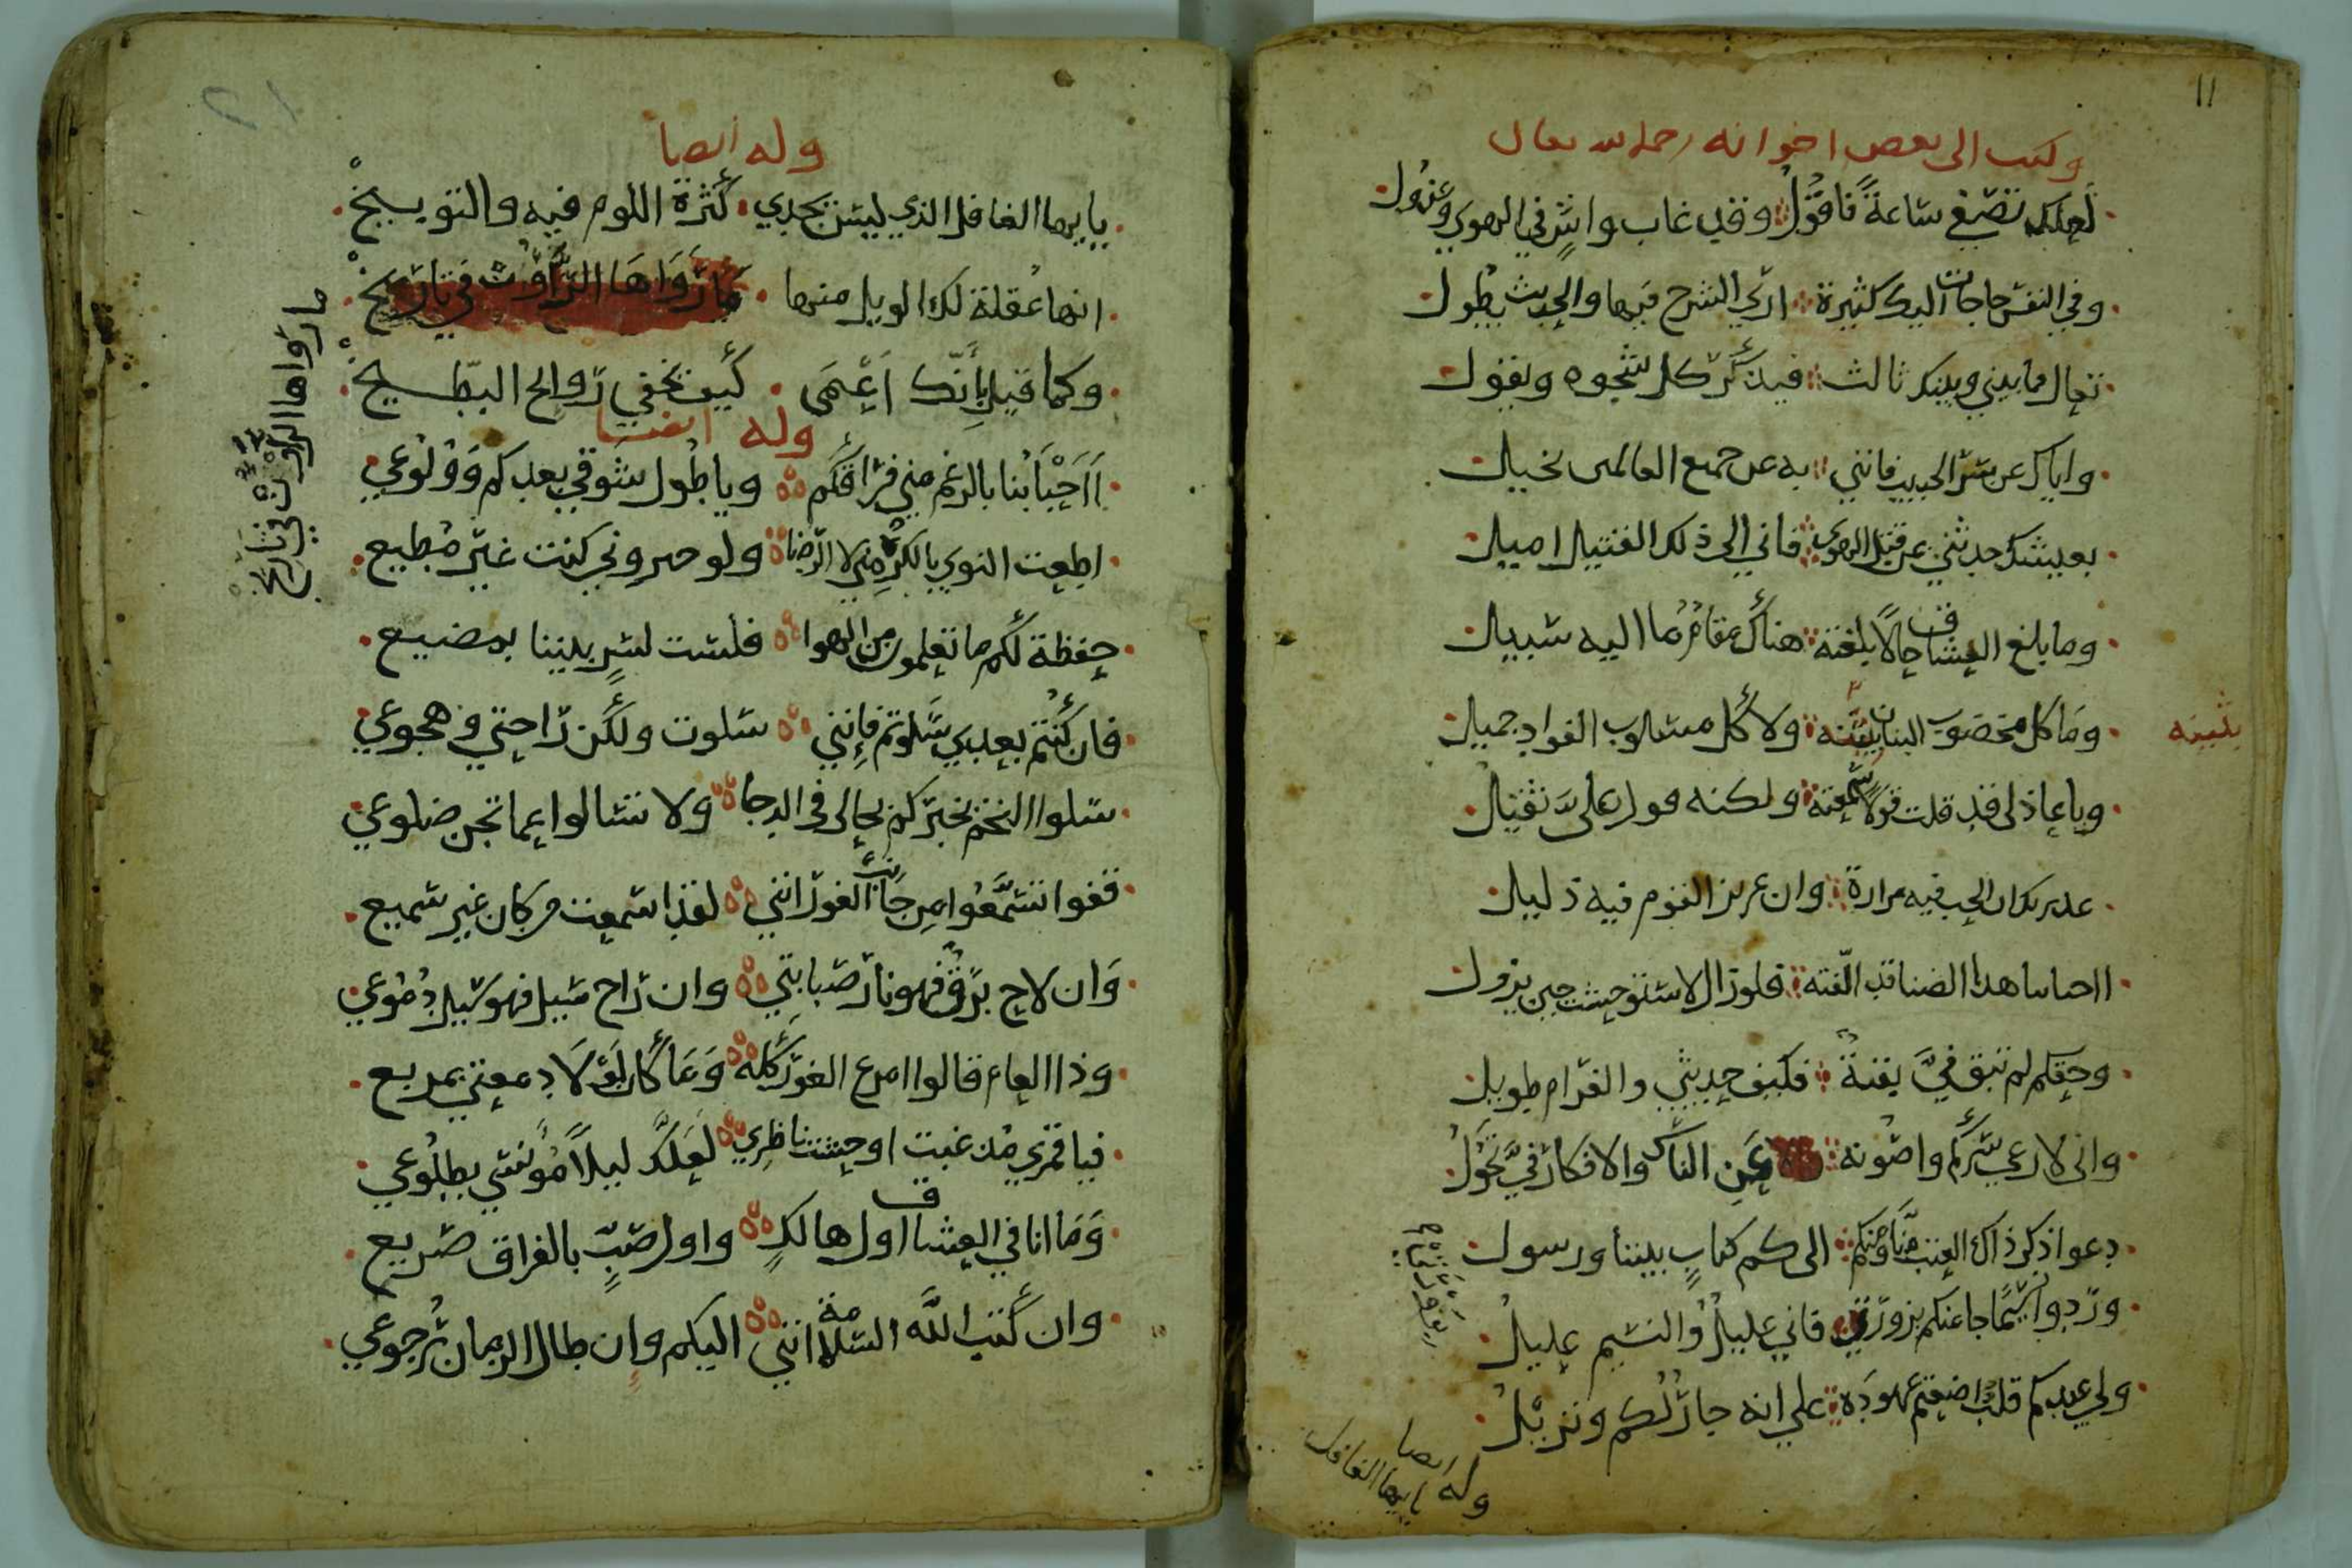 ١١
وكتب الى بعض اخوانه رحمه الله تعالى
لعلك تصغي ساعةً فاقولُ وقد غاب واشٍ في الهوى وعذول
وفي النفس حاجات اليك كثيرة ارى الشرح فيها والحديث يطول
تعال فما بيني وبينك ثالث فيذكر كل شجوه ويقول
واياك عن سر الحبيب فانني به عن جميع العالمين بخيل
بعيشك حدثني عن قتل الهوى فاني الى ذلك القتيل اميل
وما بلغ العشاق حالاً بلغته هناك مقامٌ ما اليه سبيل
وما كل مخضوب البنان بثينه ولا كل مسلوب الفواد جميل
بثينه
ويا عاذلي قد قلت قولاً سمعته ولكنه قول علىَّ ثقيل
عذيرك ان الحب فيه مرارة وان عزيز القوم فيه ذليل
ااحبابنا هذا الضنا قد الّفته فلو زال لاستوحشت حين يزول
وحقكم لم تبق فيَّ بقيةٌ فكيف حديثي والغرام طويل
واني لارعى سركم واصونه عن الناس والافكار فيَّ تجول
دعوا ذكر ذاك العتب منّا ومنكم الى كم كتابٍ بيننا ورسول
وردوا نسيمًا جا عنكم يزورني فاني عليلٌ والنسيم عليلُ
ولي عندكم قلبٌ اضعتم عهوده على انه جارٌ لكم ونزيلُ
وله ايضا
يا يها الغافل
وله ايضا
يا يها الغافل الذي ليس يجدي كثرة اللوم فيه والتوبيخ
انها عقلة لك الويل منها ما رَوَاهَا الرَّاوُت في تاريخ
ما رواها الراوُت في تاريخ
وكما قيل بأنّك اَعْمَى كيف تخفي روايح البطّيخ
وله ايضا
اَاَحْبَابُنا بالرغم مني فراقكم ويا طُول شوقي بعدكم وَوُلُوعي
اطعت النوى بالكره مني لا الرضا ولو خيروني كنت غير مطيع
حفظة لكم ما تعلمون من الهوا فلست لسرٍ بيننا بمضيع
فان كنتم بعدي سَلوتم فإنني سلوت ولكن راحتي وهجوعي
سلوا النجم يخبركم بحالي في الدجا ولا تسالوا عما تجن ضلوعي
قفوا تسمَّعُوا من جانب الغور انني لقد اسمعت من كان غير سميع
وَان لاح برقٌ فهو نار صبابتي وان راح سيل فهو سيل دُموعي
وذا العام قالوا امرع الغورُ كله وَمَا كان لَوْلَا دمعتي بمريع
فيا قمري مذ غبت اوحشت ناظري لعلك ليلاً مُونسي بطلُوعي
وَمَا انا في العشاق اول هالكٍ واول صبٍّ بالفراق صريع
وان كتب اللَّه السلامة انني اليكم وان طال الزمان رُجوعي